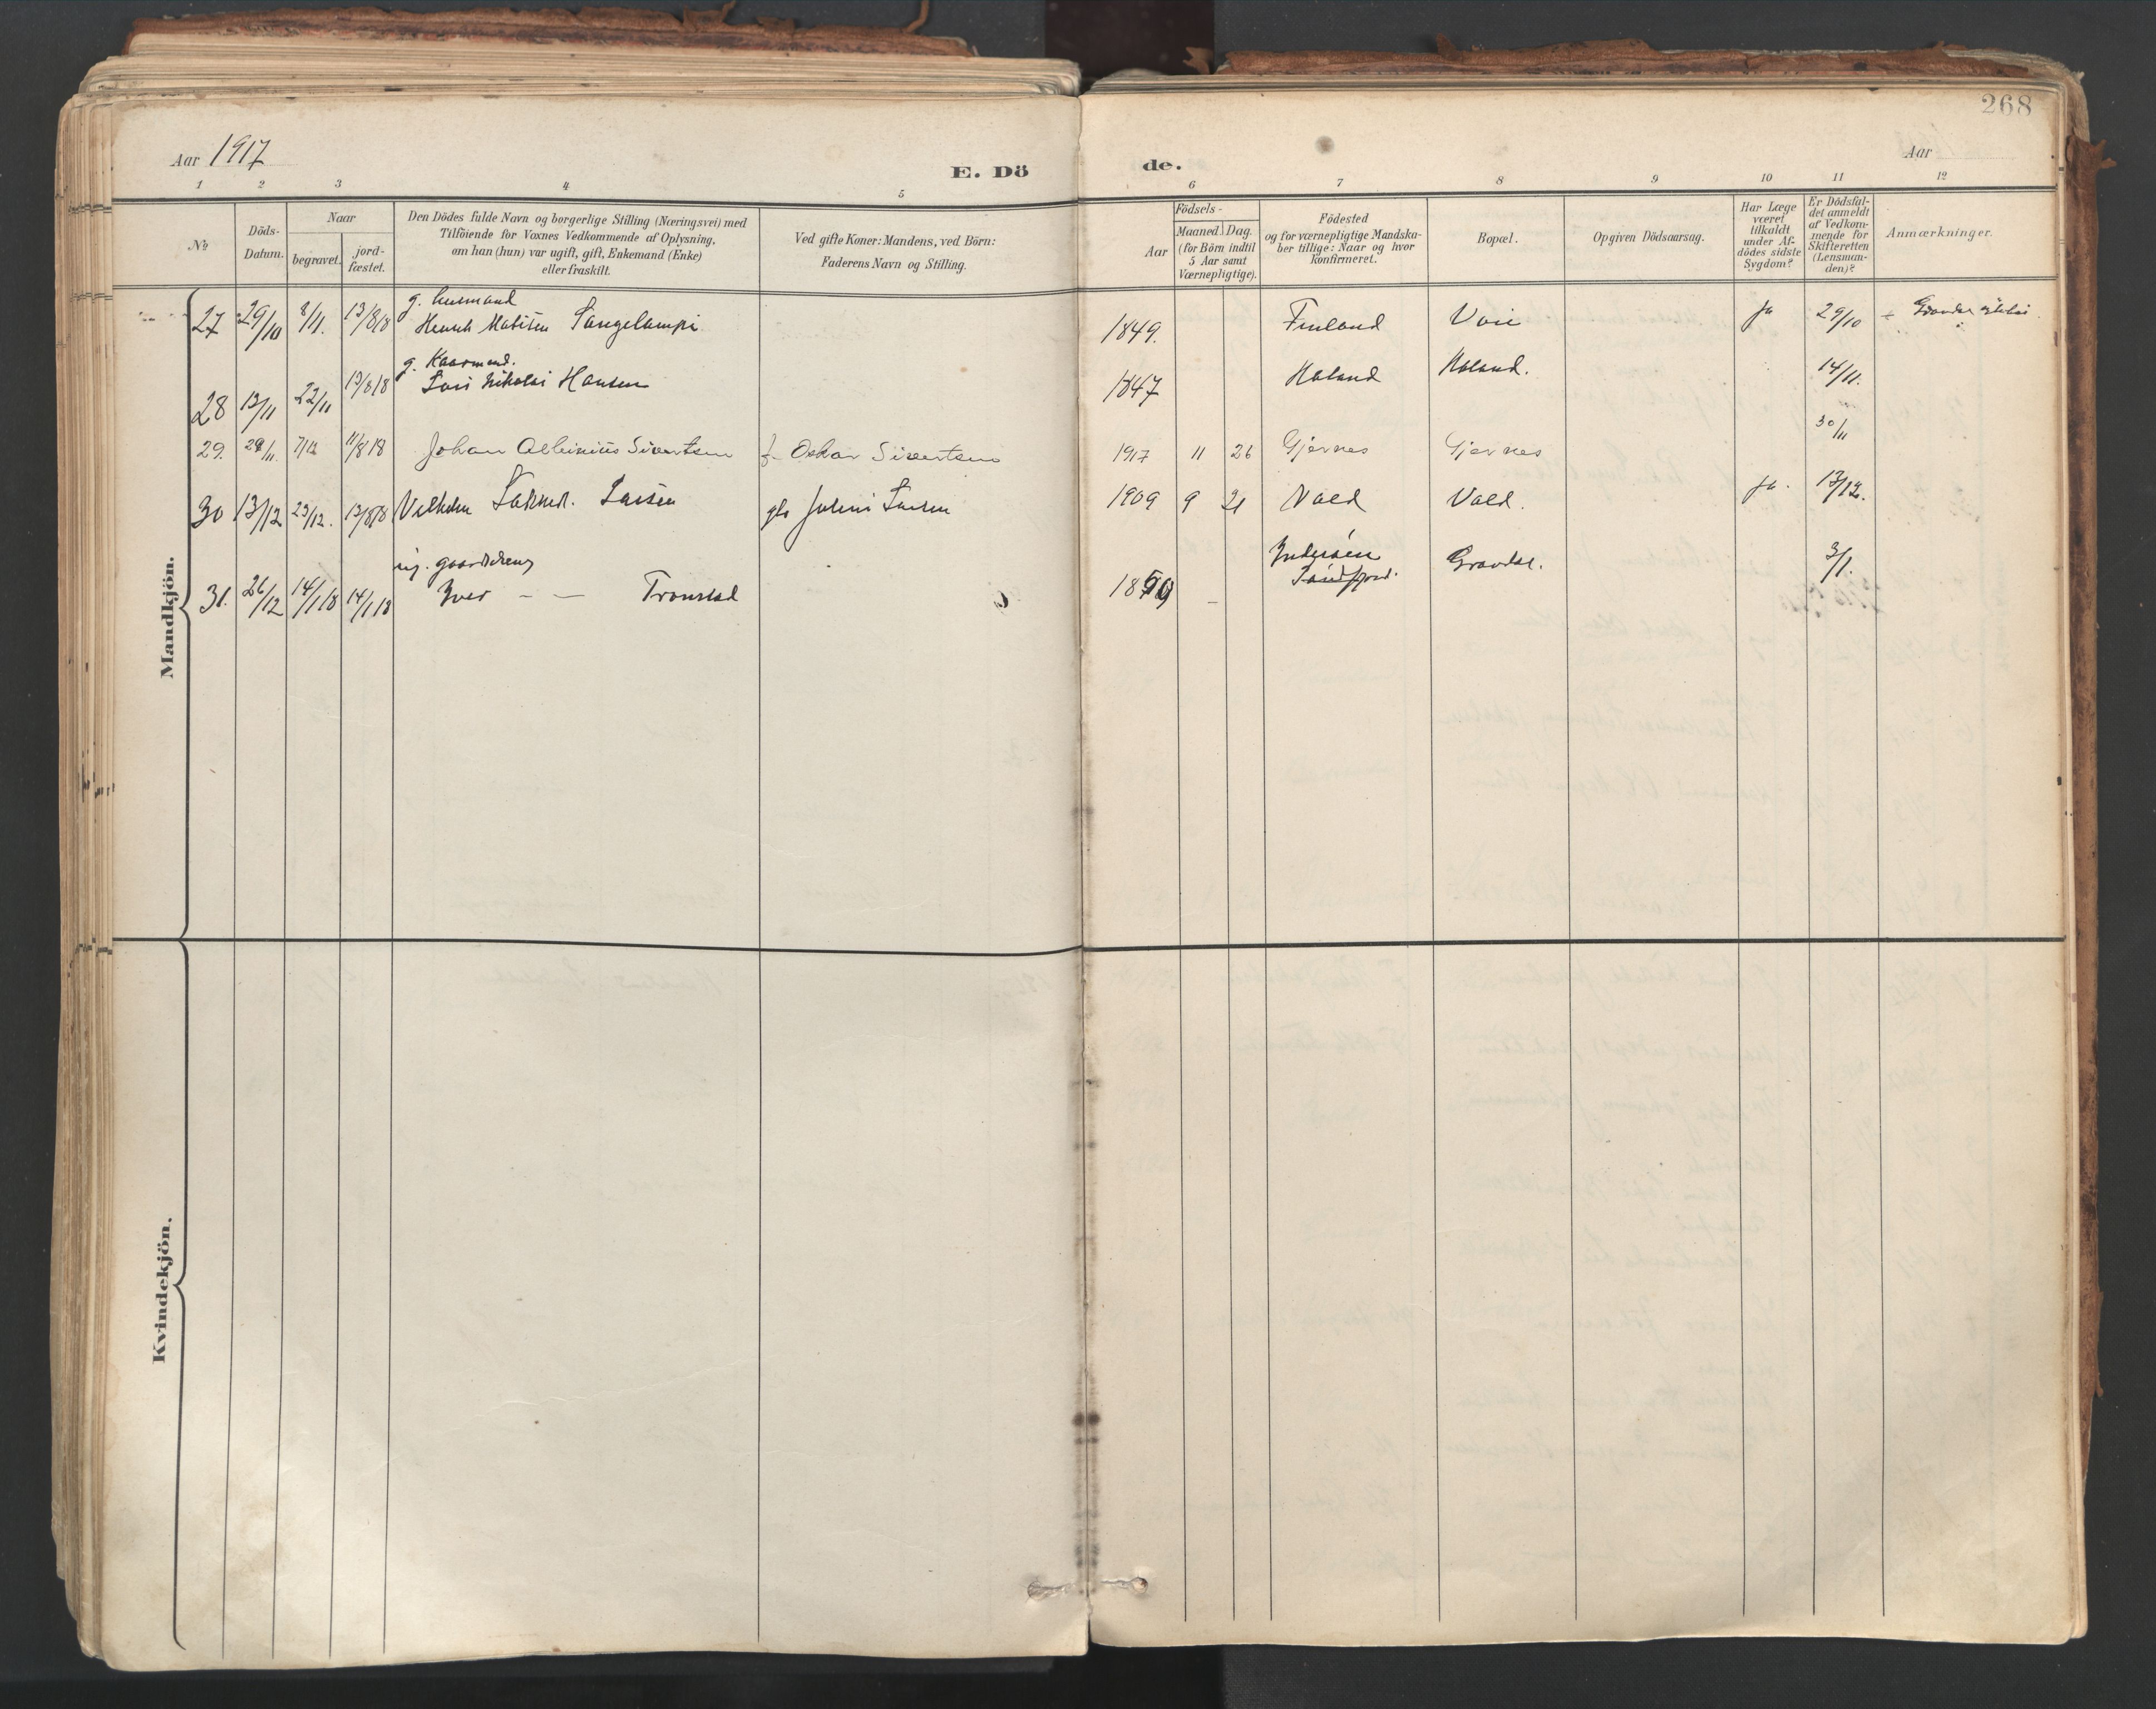 268
Aar 1917
E. Dö
de.
Aar
1 2 3 4 5 6 7 8 9 10 11 12
No
Döds-
Datum.
Naar
begravet.
jord-
fæstet.
Den Dödes fulde Navn og borgerlige Stilling (Næringsvei) med
Tilföiende for Voxnes Vedkommende af Oplysning,
om han (hun) var ugift, gift, Enkemand (Enke)
eller fraskilt.
Ved gifte Koner: Mandens, ved Börn:
Faderens Navn og Stilling.
Födsels-
Aar
Maaned.
Dag.
(for Börn indtil
5 Aar samt
Værnepligtige).
Födested
og for værnepligtige Mandska-
ber tillige: Naar og hvor
konfirmeret.
Bopæl.
Opgiven Dödsaarsag.
Har Læge
været
tilkaldt
under Af-
dödes sidste
Sygdom?
Er Dödsfal-
det anmeldt
af Vedkom-
mende for
Skifteretten
(Lensman-
den)?
Anmærkninger.
Mandkjön.
g. husmand
27 29/10 8/11. 13/8 18 Henrik Matisen Langelampi 1849. Finland Voie ja 29/10
g. Kaarmand.
28 13/11 22/11 13/8 18 Lars Nikolai Hansen 1847 Haland Haland. 14/11.
29. 29/11. 7/12 11/8 18 Johan Albinius Sivertsen f. Oskar Sivertsen 1917 11 26 Gjernes Gjernes 30/11
30 13/12 23/12. 13/8 18 Vilhelm Larsen Larsen 1909 9 21 Vold Vold. ja. 13/12.
31. 26/12 14/1 18 14/1 18 Iver - — Tronstad 1859 - Inderöen Gravdal. 3/1.
Kvindekjön.